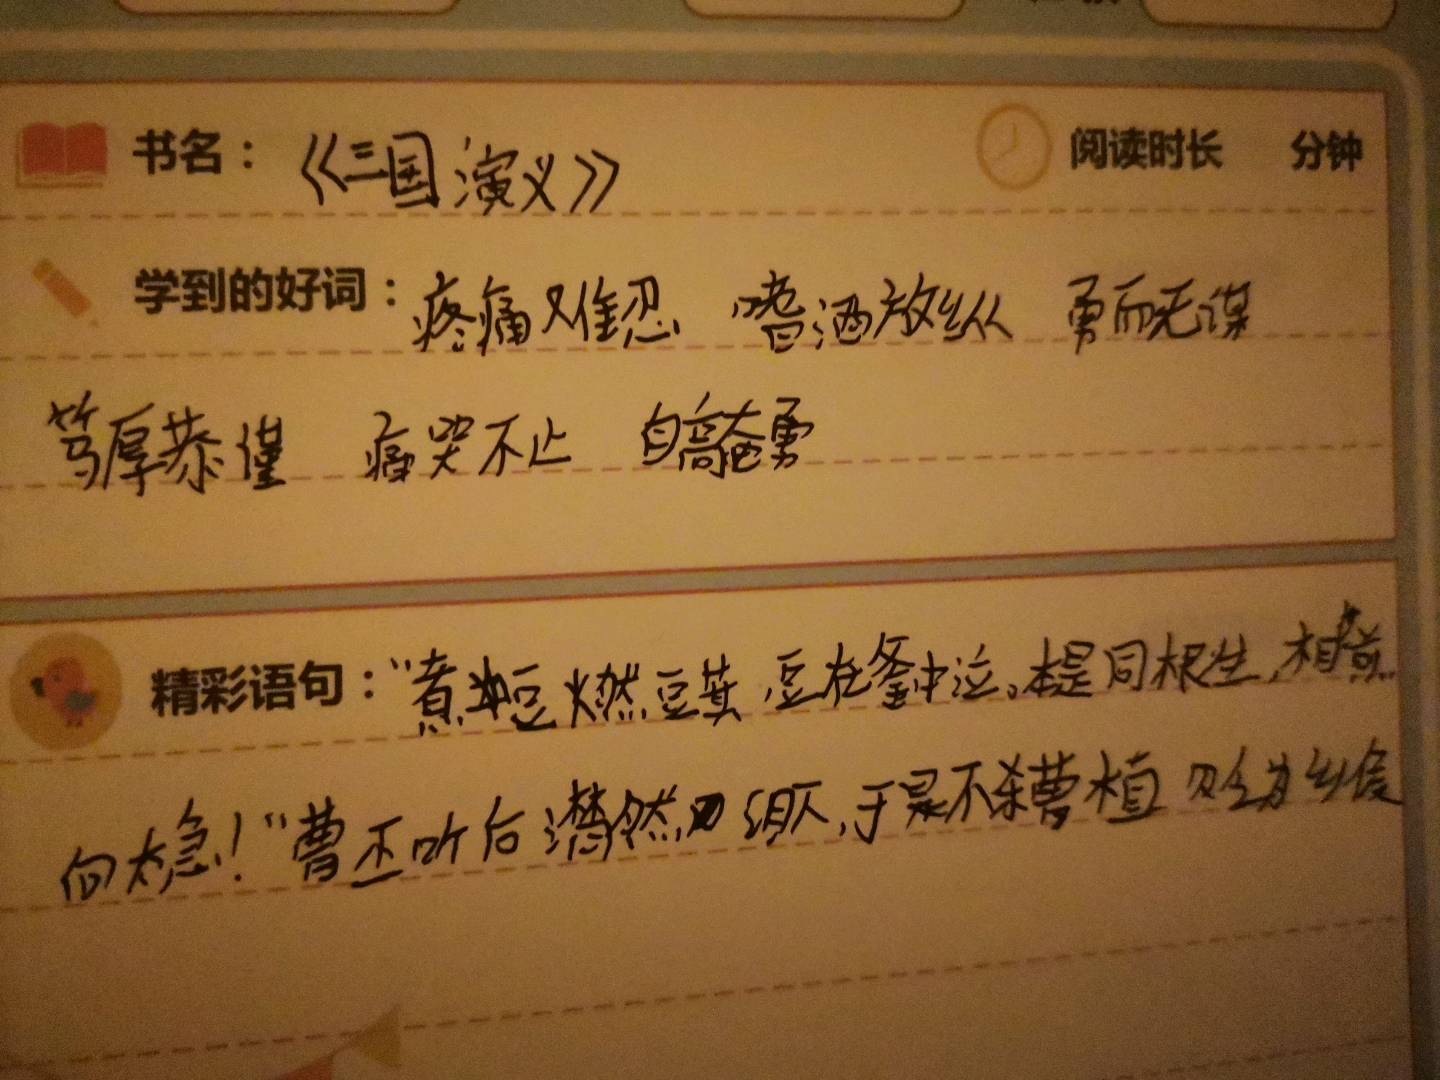 书名：《三国演义》 阅读时长 分钟
学到的好词：疼痛难忍 嗜酒放纵 勇而无谋
笃厚恭谨 痛哭不止 自高奋勇
精彩语句：“煮豆燃豆萁，豆在釜中泣。本是同根生，相煎
何太急！”曹丕听后潸然泪下，于是不杀曹植 贬为乡侯